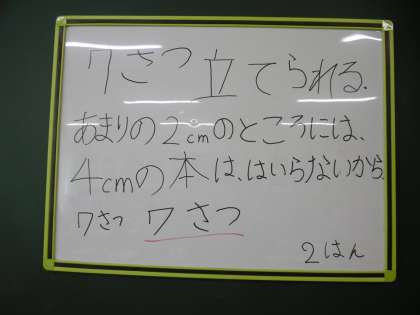 7さつ立てられる.
あまりの2cmのところには、
4cmの本は、はいらないから.
7さつ 7さつ
2はん